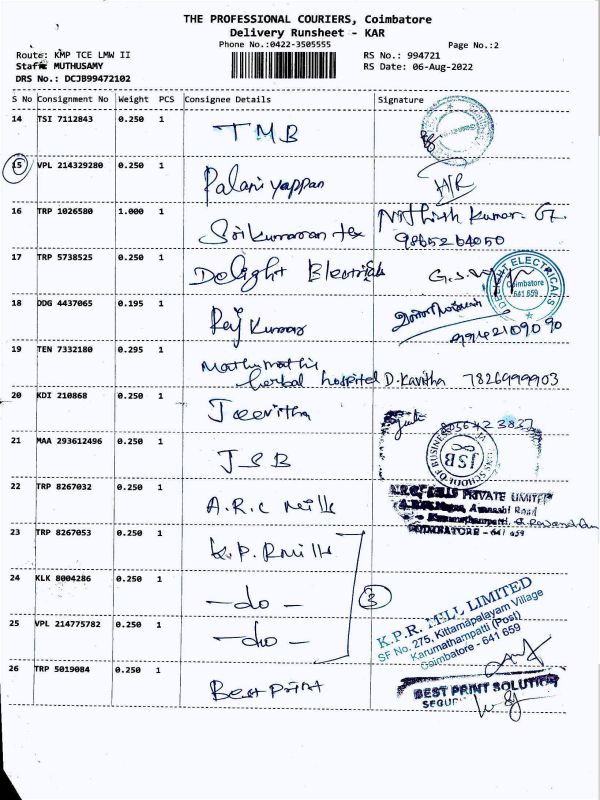 THE PROFESSIONAL COURIERS, Coimbatore
Delivery Runsheet - KAR
Phone No.:0422-3505555
Page No.:2
Route: KMP TCE LMW II
RS No.: 994721
Staff: MUTHUSAMY
RS Date: 06-Aug-2022
DRS No.: DCJB99472102
S No Consignment No Weight PCS Consignee Details Signature
14 TSI 7112843 0.250 1 TMB
15 VPL 214329280 0.250 1 Palaniyappan
16 TRP 1026580 1.000 1 Srikumaran tex Nithish Kumar. G
9865264050
17 TRP 5738525 0.250 1 Delight Electricals
DELIGHT ELECTRICALS
Coimbatore
641 659
18 DDG 4437065 0.195 1 Raj Kumar
9942109090
19 TEN 7332180 0.295 1 Mathumathi
herbal hospital D. Kavitha 7826999903
20 KDI 210868 0.250 1 Jeevitha
8056423837
21 MAA 293612496 0.250 1 JSB
JSB
SCHOOL OF BUSINESS
22 TRP 8267032 0.250 1 A.R.C Mills
PRIVATE LIMITED
Avanashi Road
COIMBATORE - 641 659
23 TRP 8267053 0.250 1 K.P.R mills
24 KLK 8004286 0.250 1 -do- 3
25 VPL 214775782 0.250 1 -do-
K.P.R. MILL LIMITED
SF No. 275, Kittampalayam Village
Karumathampatti (Post)
Coimbatore - 641 659
26 TRP 5019084 0.250 1 Best Print
BEST PRINT SOLUTION